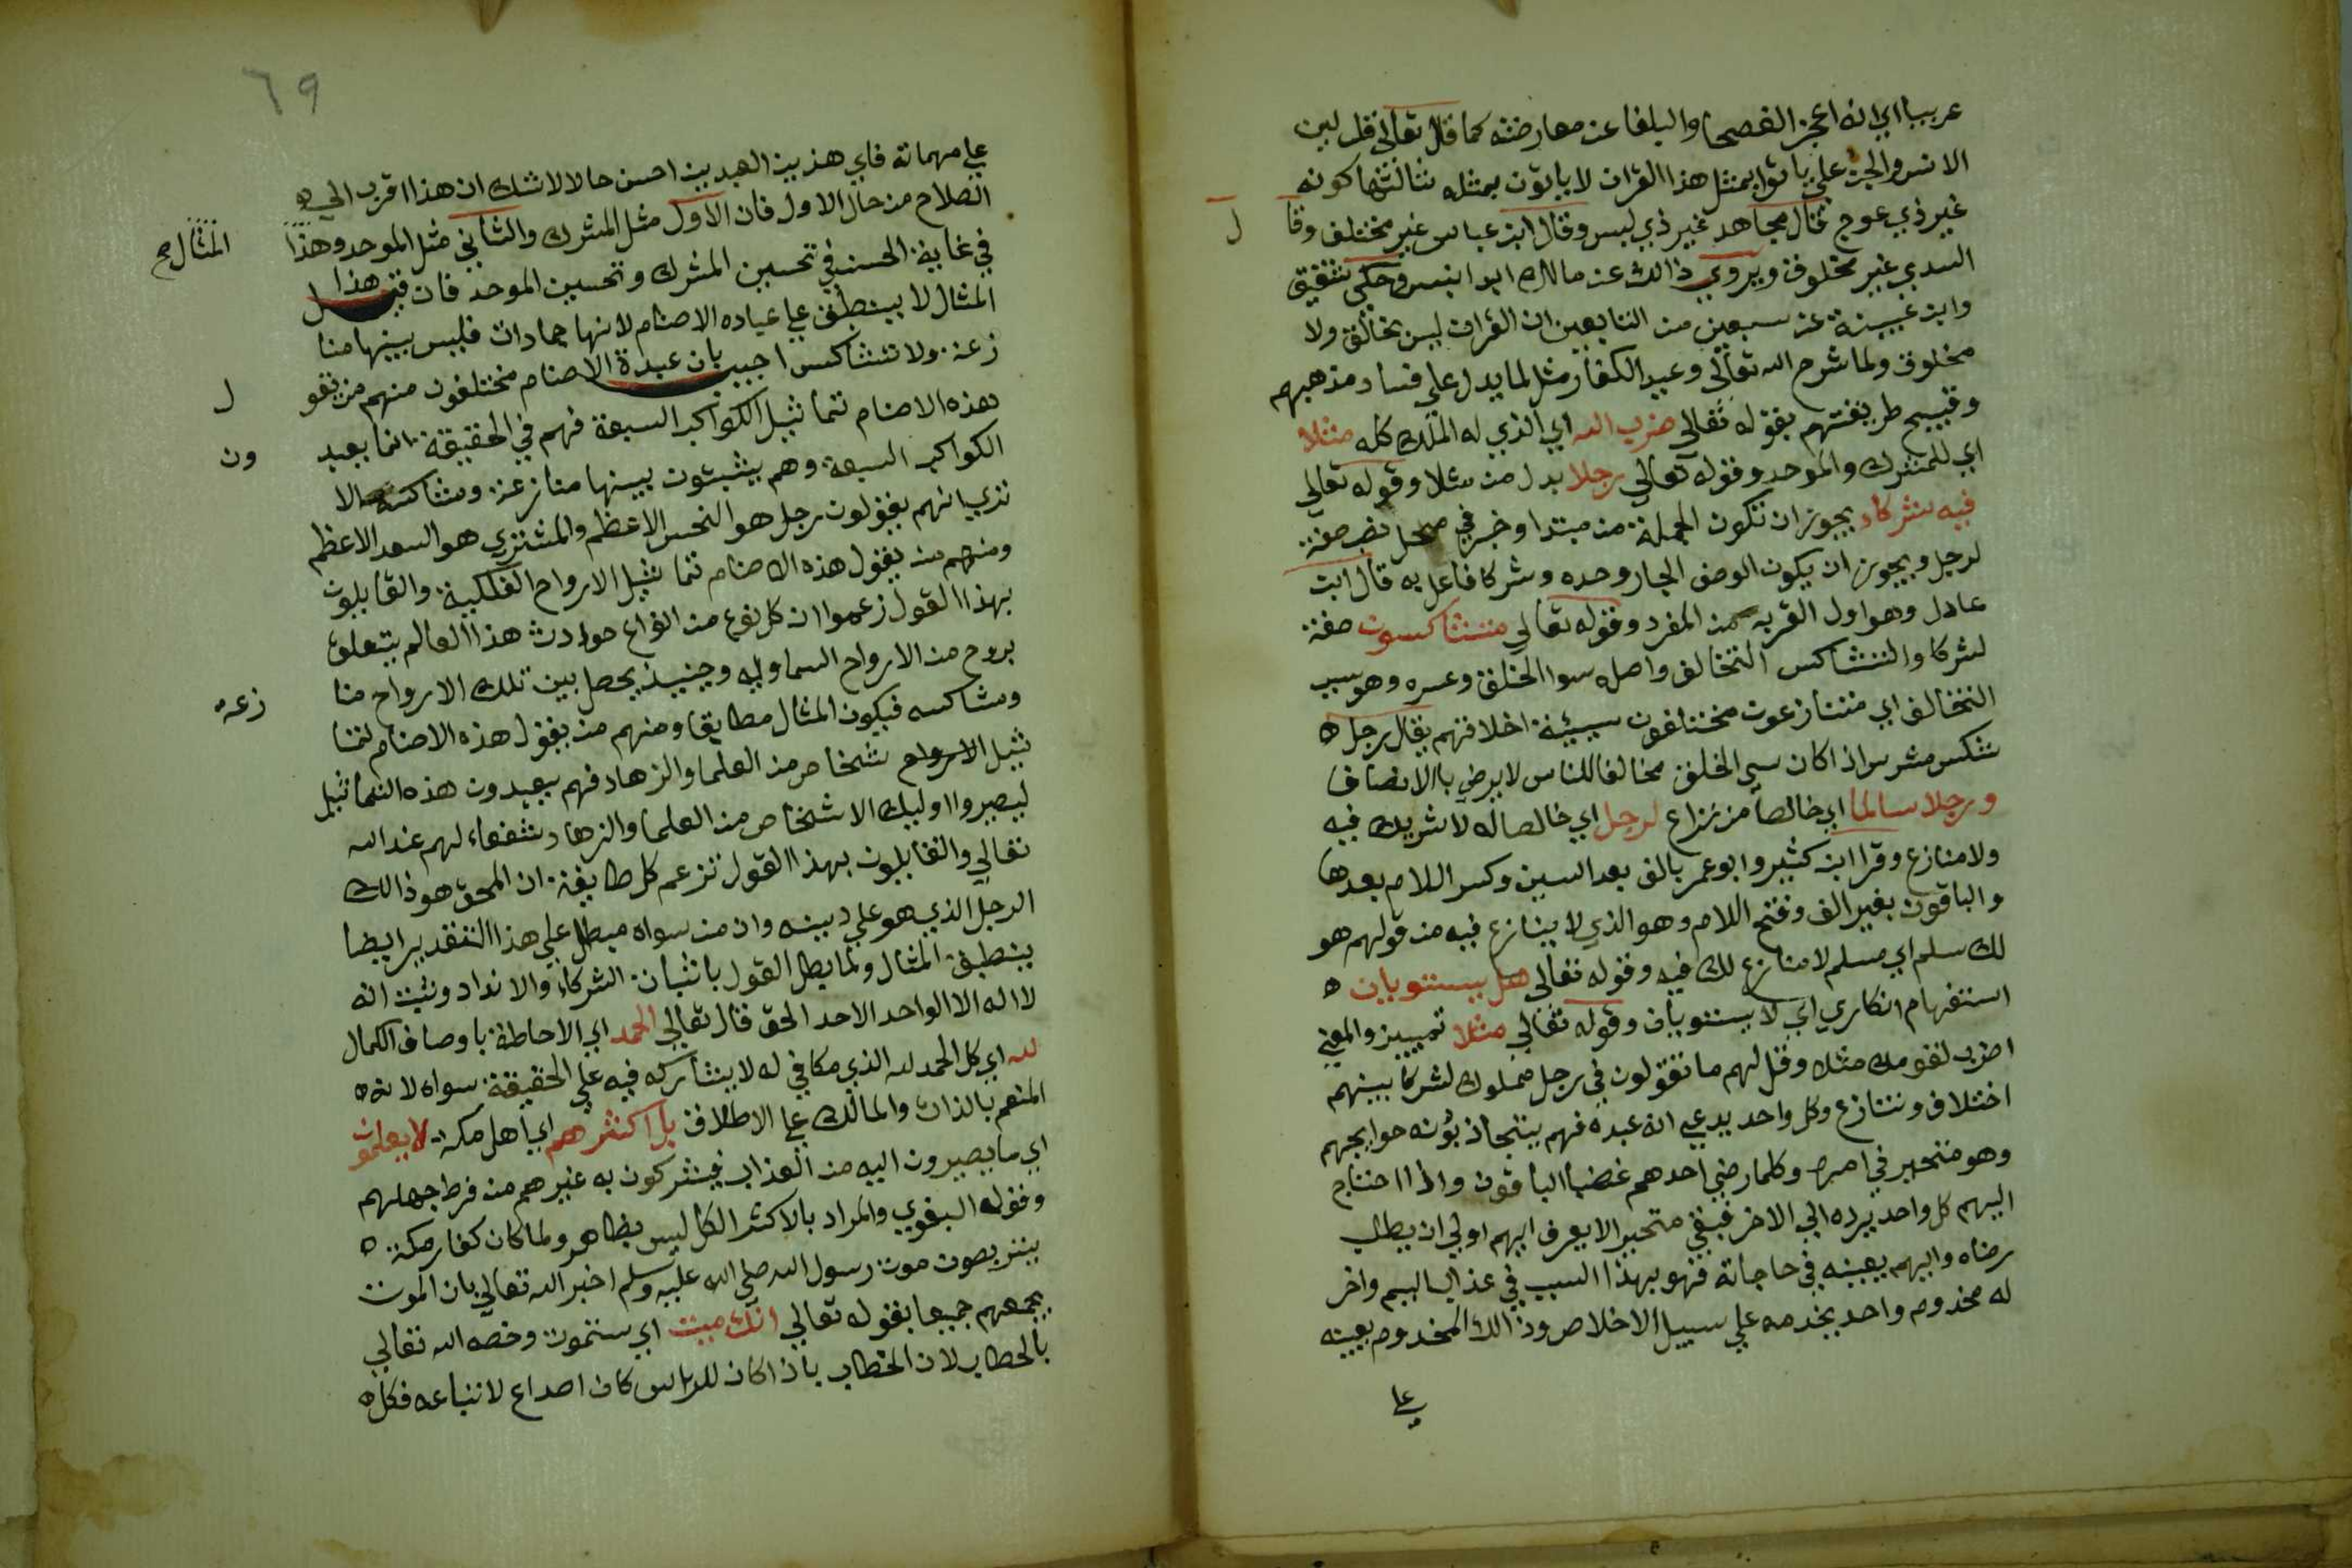 عربيا اي انه اعجز الفصحا والبلغا عن معارضته كما قال تعالى قل لين
الانس والجن على ياتوا بمثل هذا القران لا ياتون بمثله ثالثها كونه
غير ذي عوج قال مجاهد غير ذي لبس وقال ابن عباس غير مختلف وقا
ل
السدي غير مخلوق ويروي ذالك عن مالك ابن انس وحكي شقيق
وابن عيينة عن سبعين من التابعين ان القران ليس بخالق ولا
مخلوق ولما شرح الله تعالى وعيد الكفار مثل لما يدل على فساد مذهبهم
وقبيح طريقتهم بقوله تعالى ضرب الله اي الذي له الملك كله مثلا
اي للمشرك والموحد وقوله تعالي رجلا بدل من مثلا وقوله تعالي
فيه شركاء يجوز ان تكون الجملة من مبتدا وخبر في محل نصب صفة
لرجل ويجوز ان يكون الوصف الجار وحده وشركا فاعل به قال ابن
عادل وهو اول القربه من المفرد وقوله تعالي متشاكسون صفة
لشركا والتشاكس التخالف واصله سوا الخلق وعسره وهو سبب
التخالف اي متنازعون مختلفون سيئة اخلاقهم يقال رجل ه
شكس شرس اذا كان سي الخلق مخالفا للناس لا يرضي بالانصاف
ورجلا سالما اي خالصا من نزاع لرجل اي خالصا له لا شريك فيه
ولا منازع وقرا ابن كثير وابو عمر بالف بعد السين وكسر اللام بعدها
والباقون بغير الف وفتح اللام وهو الذي لا ينازع فيه من قولهم هو
لك سلم اي مسلم لا منازع لك فيه وقوله تعالى هل يستويان ه
استفهام انكاري اي لا يستويان وقوله تعالي مثلا تمييز والمعني
اضرب لقومك مثلا وقل لهم ما تقولون في رجل مملوك لشركا بينهم
اختلاف وتنازع وكل واحد يدعي انه عبده فهم يتجاذبونه حوايجهم
وهو متحير في امره وكلما رضي احدهم غضب الباقون واذا احتاج
اليهم كل واحد يرده الي الاخر فبقي متحيرا لا يعرف ايهم اولي ان يطلب
رضاه وايهم يعينه في حاجاته فهو بهذا السبب في عذاب اليم واخر
له مخدوم واحد يخدمه علي سبيل الاخلاص وذالك المخدوم يعينه
علي
٦٩
علي مهماته فاي هذين العبدين احسن حالا لا شك ان هذا اقرب الي ه
الصلاح من حال الاول فان الاول مثل المشرك والثاني مثل الموحد وهذا
المثال صح
في غاية الحسن في تحسين المشرك وتحسين الموحد فان قيل هذا
المثال لا ينطبق علي عباده الاصنام لانها جمادات فليس بينها منا
زعة ولا تشاكس اجيب بان عبدة الاصنام مختلفون منهم من يقو
ل
هذه الاصنام تماثيل الكواكب السبعة فهم في الحقيقة انما يعبد
ون
الكواكب السبعة وهم يثبتون بينها منازعة ومشاكسة الا
تري انهم يقولون زحل هو النحس الاعظم والمشتري هو السعد الاعظم
ومنهم من يقول هذه الاصنام تماثيل الارواح الفلكية والقايلون
بهذا القول زعموا ان كل نوع من انواع حوادث هذا العالم يتعلق
بروح من الارواح السماويه وحينيذ يحصل بين تلك الارواح منا
زعه
ومشاكسه فيكون المثال مطابقا ومنهم من يقول هذه الاصنام تما
ثيل الارواح شخاص من العلما والزهاد فهم يعبدون هذه التماثيل
ليصيروا اوليك الاشخاص من العلما والزهاد شفعاء لهم عند الله
تعالي والقايلون بهذا القول تزعم كل طايفة ان المحق هو ذالك
الرجل الذي هو علي دينه وان من سواه مبطل علي هذا التقدير ايضا
ينطبق المثال ولما بطل القول باثبات الشركاء والانداد وثبت انه
لا اله الا الواحد الاحد الحق قال تعالي الحمد اي الاحاطة باوصاف الكمال
لله اي كل الحمد لله الذي مكافي له لا يشاركه فيه علي الحقيقة سواه لانه ه
المنعم بالذات والمالك علي الاطلاق بل اكثرهم اي اهل مكة لا يعلمون
اي ما يصيرون اليه من العذاب فيشركون به غيرهم من فرط جهلهم
وقوله البغوي والمراد بالاكثر الكل ليس بظاهر ولما كان كفار مكة ه
يتربصون موت رسول الله صلي الله عليه وسلم اخبر الله تعالي بان الموت
يجمعهم جميعا بقوله تعالي انك ميت اي ستموت وخصه الله تعالي
بالخطاب لان الخطاب باذا كان للراس كان اصداع لاتباعه فكل ه